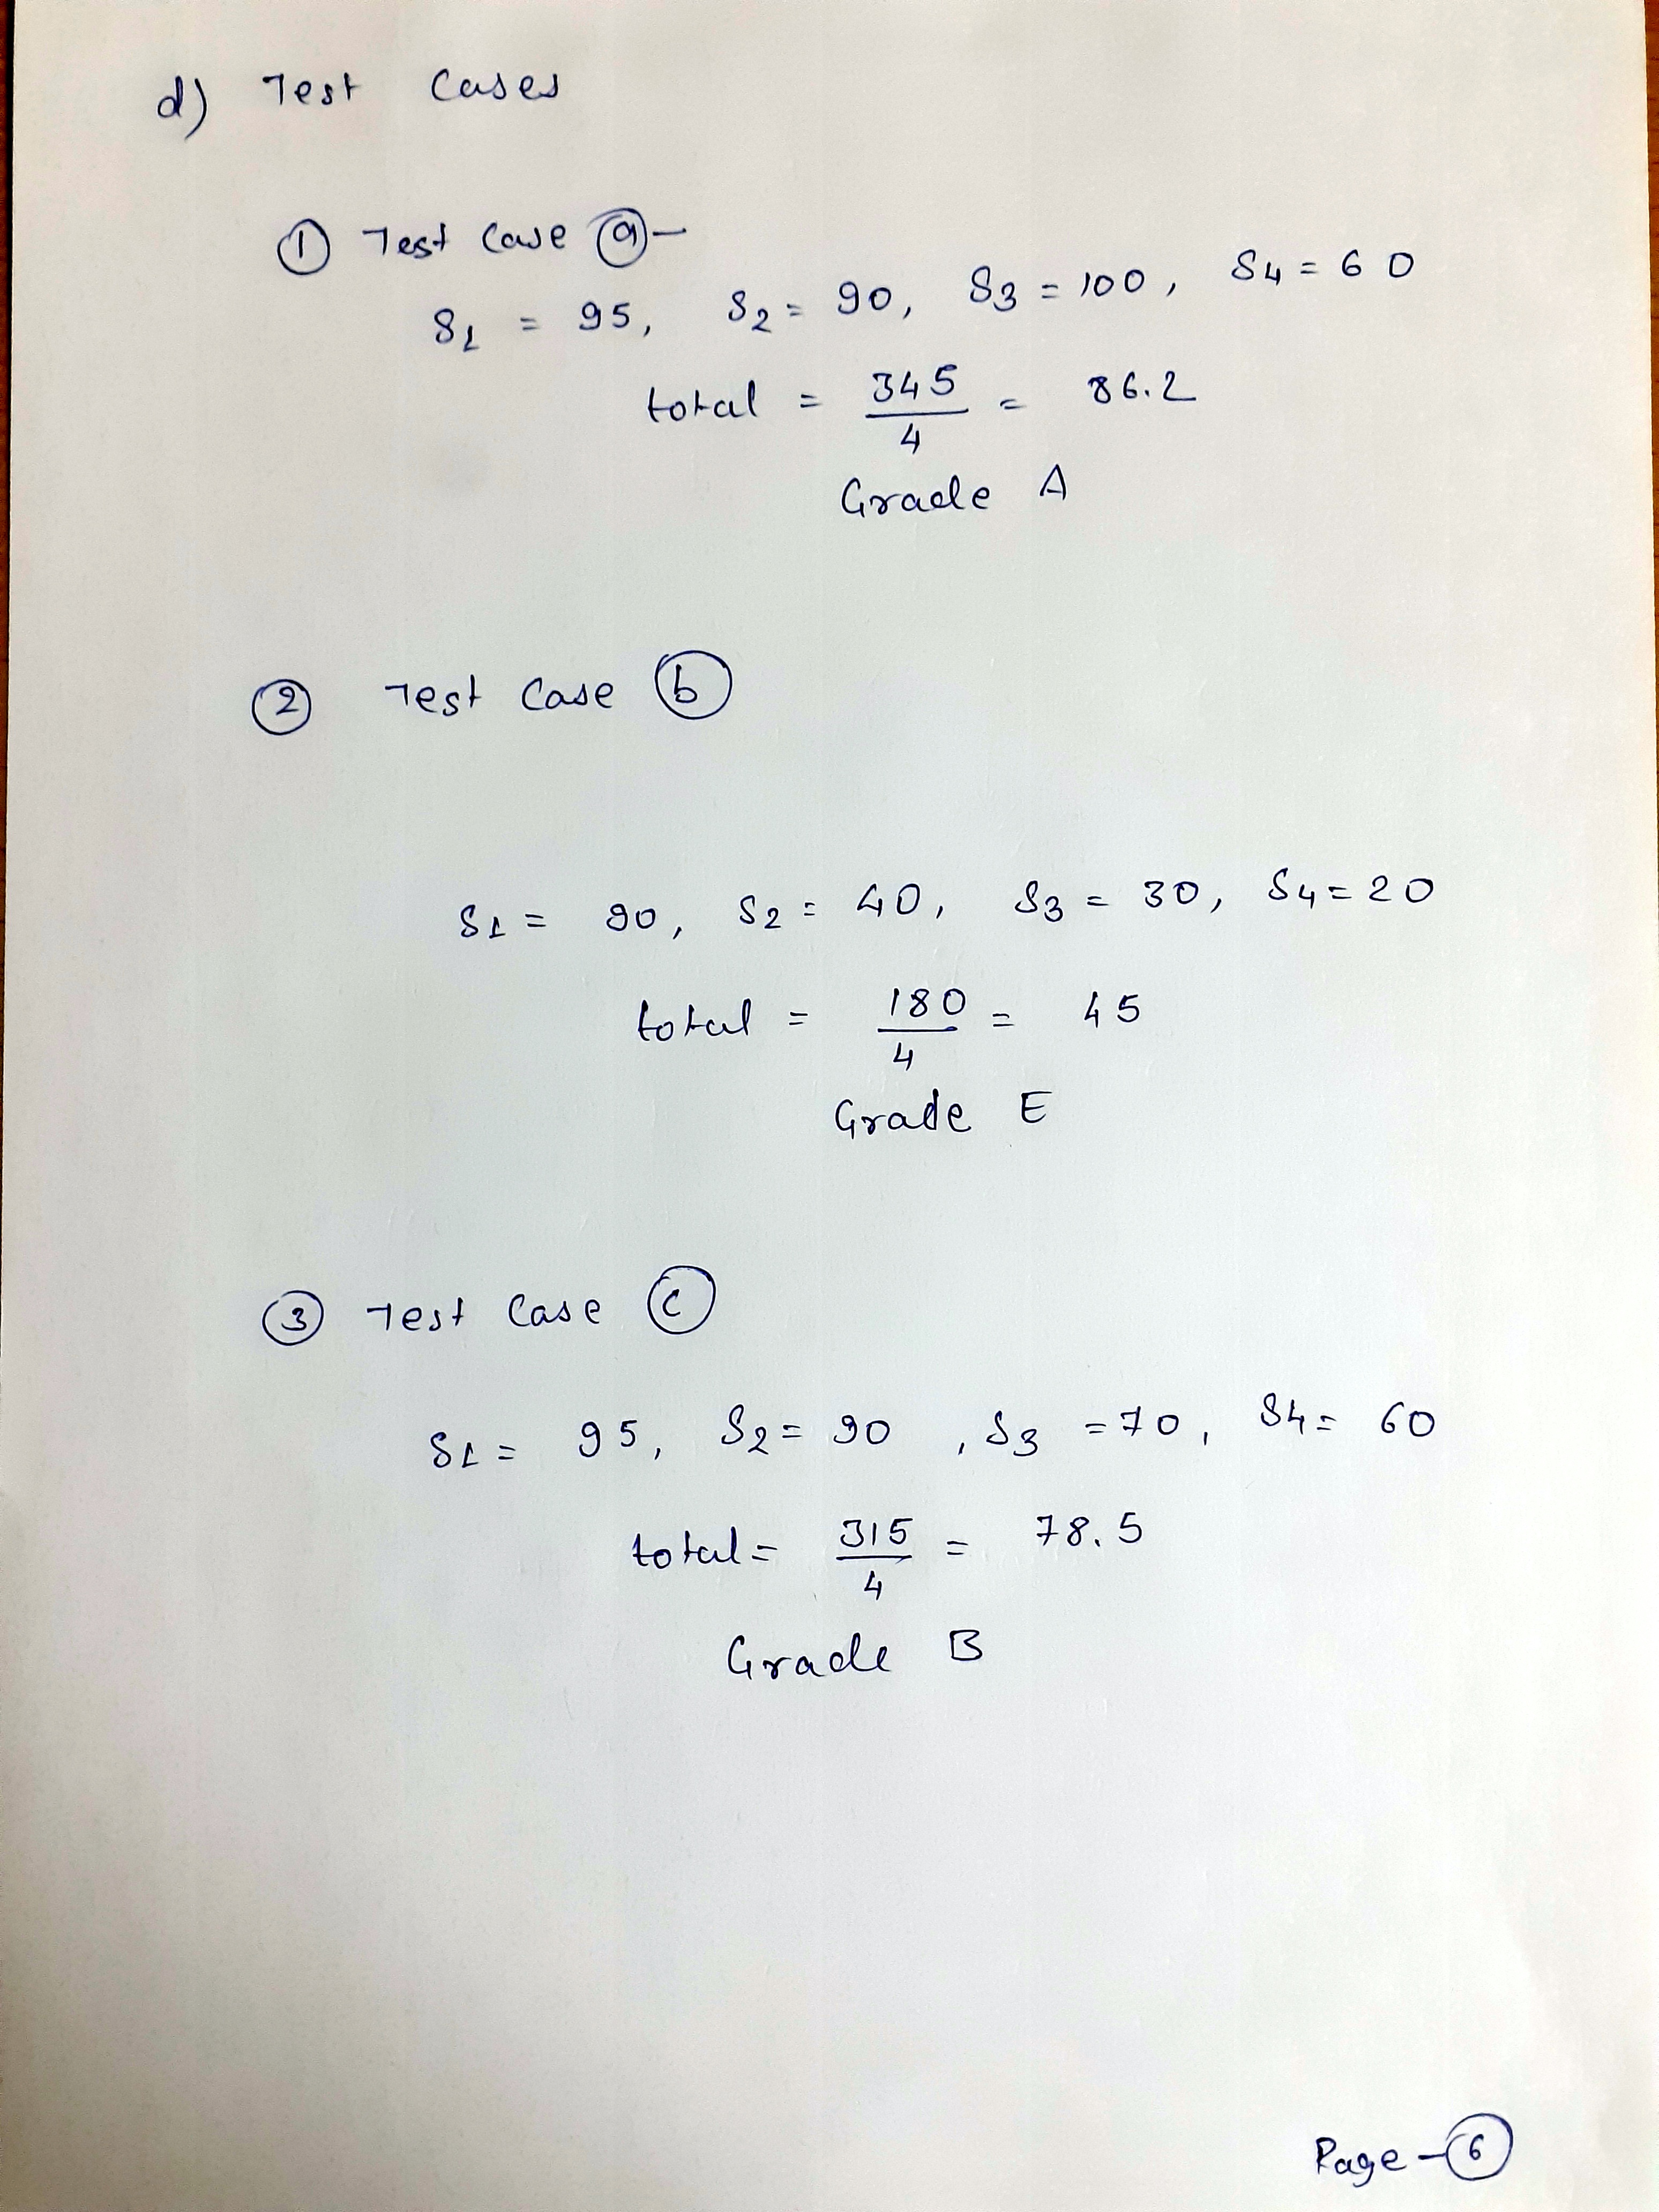 d) Test Cases
① Test Case ⓐ-
S1 = 95, S2 = 90, S3 = 100, S4 = 60
total = 345/4 = 86.2
Grade A
② Test Case ⓑ
S1 = 90, S2 = 40, S3 = 30, S4 = 20
total = 180/4 = 45
Grade E
③ Test Case ⓒ
S1 = 95, S2 = 90, S3 = 70, S4 = 60
total = 315/4 = 78.5
Grade B
Page - ⑥